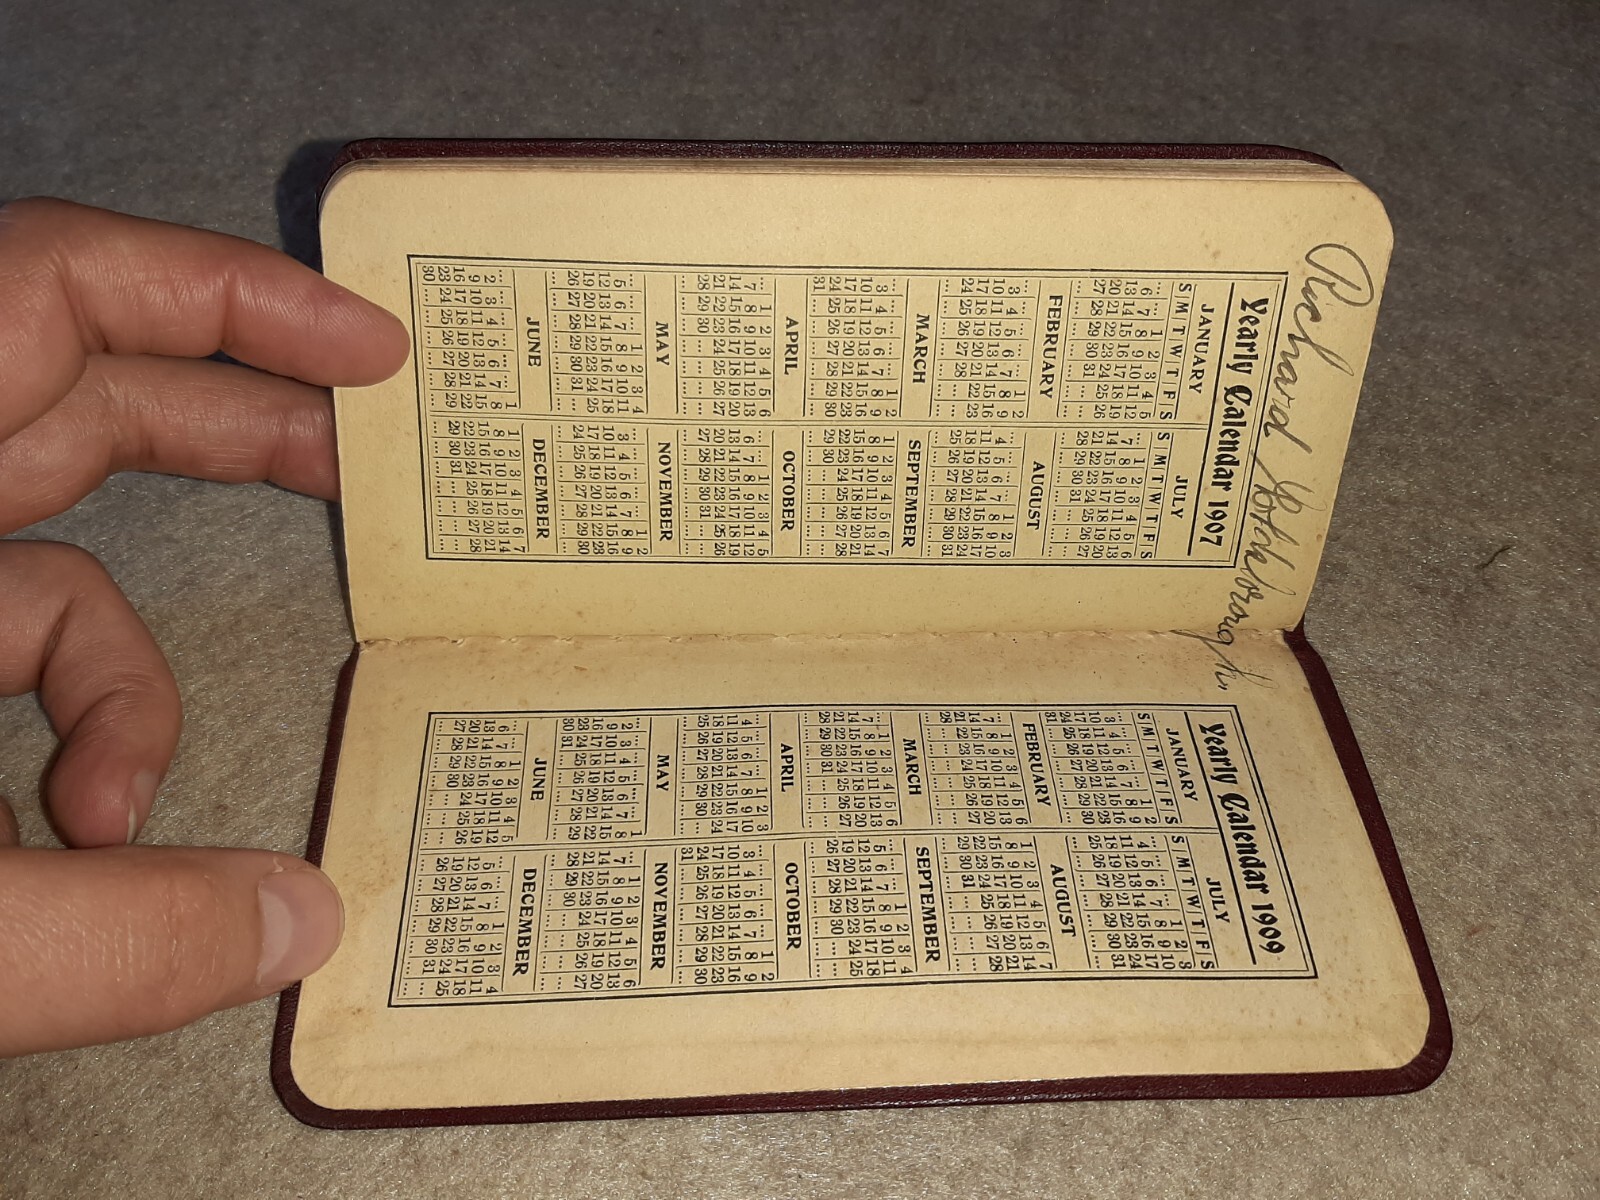 Richard
Yearly Calendar 1907
JANUARY
S M T W T F S
... ... 1 2 3 4 5
6 7 8 9 10 11 12
13 14 15 16 17 18 19
20 21 22 23 24 25 26
27 28 29 30 31 ... ...
FEBRUARY
... ... ... ... ... 1 2
3 4 5 6 7 8 9
10 11 12 13 14 15 16
17 18 19 20 21 22 23
24 25 26 27 28 ... ...
MARCH
... ... ... ... ... 1 2
3 4 5 6 7 8 9
10 11 12 13 14 15 16
17 18 19 20 21 22 23
24 25 26 27 28 29 30
31 ... ... ... ... ... ...
APRIL
... 1 2 3 4 5 6
7 8 9 10 11 12 13
14 15 16 17 18 19 20
21 22 23 24 25 26 27
28 29 30 ... ... ... ...
MAY
... ... ... 1 2 3 4
5 6 7 8 9 10 11
12 13 14 15 16 17 18
19 20 21 22 23 24 25
26 27 28 29 30 31 ...
JUNE
... ... ... ... ... ... 1
2 3 4 5 6 7 8
9 10 11 12 13 14 15
16 17 18 19 20 21 22
23 24 25 26 27 28 29
30 ... ... ... ... ... ...
JULY
S M T W T F S
... 1 2 3 4 5 6
7 8 9 10 11 12 13
14 15 16 17 18 19 20
21 22 23 24 25 26 27
28 29 30 31 ... ... ...
AUGUST
... ... ... ... 1 2 3
4 5 6 7 8 9 10
11 12 13 14 15 16 17
18 19 20 21 22 23 24
25 26 27 28 29 30 31
SEPTEMBER
1 2 3 4 5 6 7
8 9 10 11 12 13 14
15 16 17 18 19 20 21
22 23 24 25 26 27 28
29 30 ... ... ... ... ...
OCTOBER
... ... 1 2 3 4 5
6 7 8 9 10 11 12
13 14 15 16 17 18 19
20 21 22 23 24 25 26
27 28 29 30 31 ... ...
NOVEMBER
... ... ... ... ... 1 2
3 4 5 6 7 8 9
10 11 12 13 14 15 16
17 18 19 20 21 22 23
24 25 26 27 28 29 30
DECEMBER
1 2 3 4 5 6 7
8 9 10 11 12 13 14
15 16 17 18 19 20 21
22 23 24 25 26 27 28
29 30 31 ... ... ... ...
Yearly Calendar 1909
JANUARY
S M T W T F S
... ... ... ... ... 1 2
3 4 5 6 7 8 9
10 11 12 13 14 15 16
17 18 19 20 21 22 23
24 25 26 27 28 29 30
31 ... ... ... ... ... ...
FEBRUARY
... 1 2 3 4 5 6
7 8 9 10 11 12 13
14 15 16 17 18 19 20
21 22 23 24 25 26 27
28 ... ... ... ... ... ...
MARCH
... 1 2 3 4 5 6
7 8 9 10 11 12 13
14 15 16 17 18 19 20
21 22 23 24 25 26 27
28 29 30 31 ... ... ...
APRIL
... ... ... ... 1 2 3
4 5 6 7 8 9 10
11 12 13 14 15 16 17
18 19 20 21 22 23 24
25 26 27 28 29 30 ...
MAY
... ... ... ... ... ... 1
2 3 4 5 6 7 8
9 10 11 12 13 14 15
16 17 18 19 20 21 22
23 24 25 26 27 28 29
30 31 ... ... ... ... ...
JUNE
... ... 1 2 3 4 5
6 7 8 9 10 11 12
13 14 15 16 17 18 19
20 21 22 23 24 25 26
27 28 29 30 ... ... ...
JULY
S M T W T F S
... ... ... ... 1 2 3
4 5 6 7 8 9 10
11 12 13 14 15 16 17
18 19 20 21 22 23 24
25 26 27 28 29 30 31
AUGUST
1 2 3 4 5 6 7
8 9 10 11 12 13 14
15 16 17 18 19 20 21
22 23 24 25 26 27 28
29 30 31 ... ... ... ...
SEPTEMBER
... ... ... 1 2 3 4
5 6 7 8 9 10 11
12 13 14 15 16 17 18
19 20 21 22 23 24 25
26 27 28 29 30 ... ...
OCTOBER
... ... ... ... ... 1 2
3 4 5 6 7 8 9
10 11 12 13 14 15 16
17 18 19 20 21 22 23
24 25 26 27 28 29 30
31 ... ... ... ... ... ...
NOVEMBER
... 1 2 3 4 5 6
7 8 9 10 11 12 13
14 15 16 17 18 19 20
21 22 23 24 25 26 27
28 29 30 ... ... ... ...
DECEMBER
... ... ... 1 2 3 4
5 6 7 8 9 10 11
12 13 14 15 16 17 18
19 20 21 22 23 24 25
26 27 28 29 30 31 ...